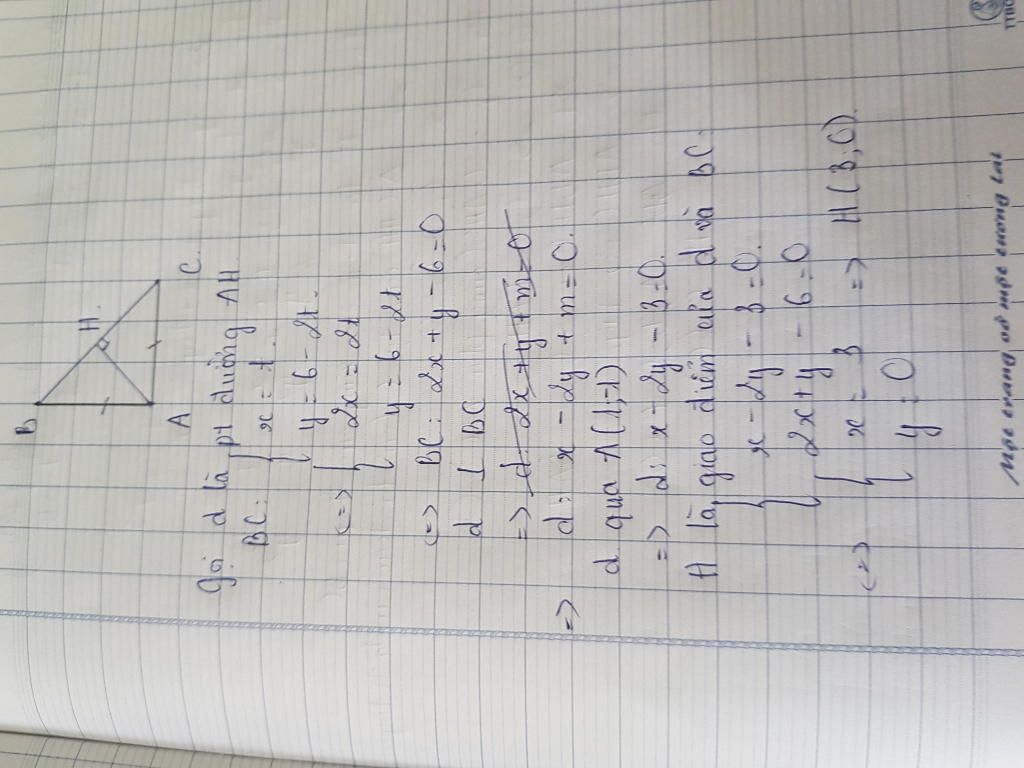 B
H.
A
C.
Gọi d là pt đường AH
BC: { x = t.
y = 6 - 2t.
<=> { 2x = 2t
y = 6 - 2t
<=> BC: 2x + y - 6 = 0
d ⊥ BC
=> d: 2x + y + m = 0
=> d: x - 2y + m = 0.
d qua A(1,-1)
=> d: x - 2y - 3 = 0.
H là giao điểm của d và BC.
{ x - 2y - 3 = 0.
2x + y - 6 = 0
<=> { x = 3 => H(3;0).
y = 0